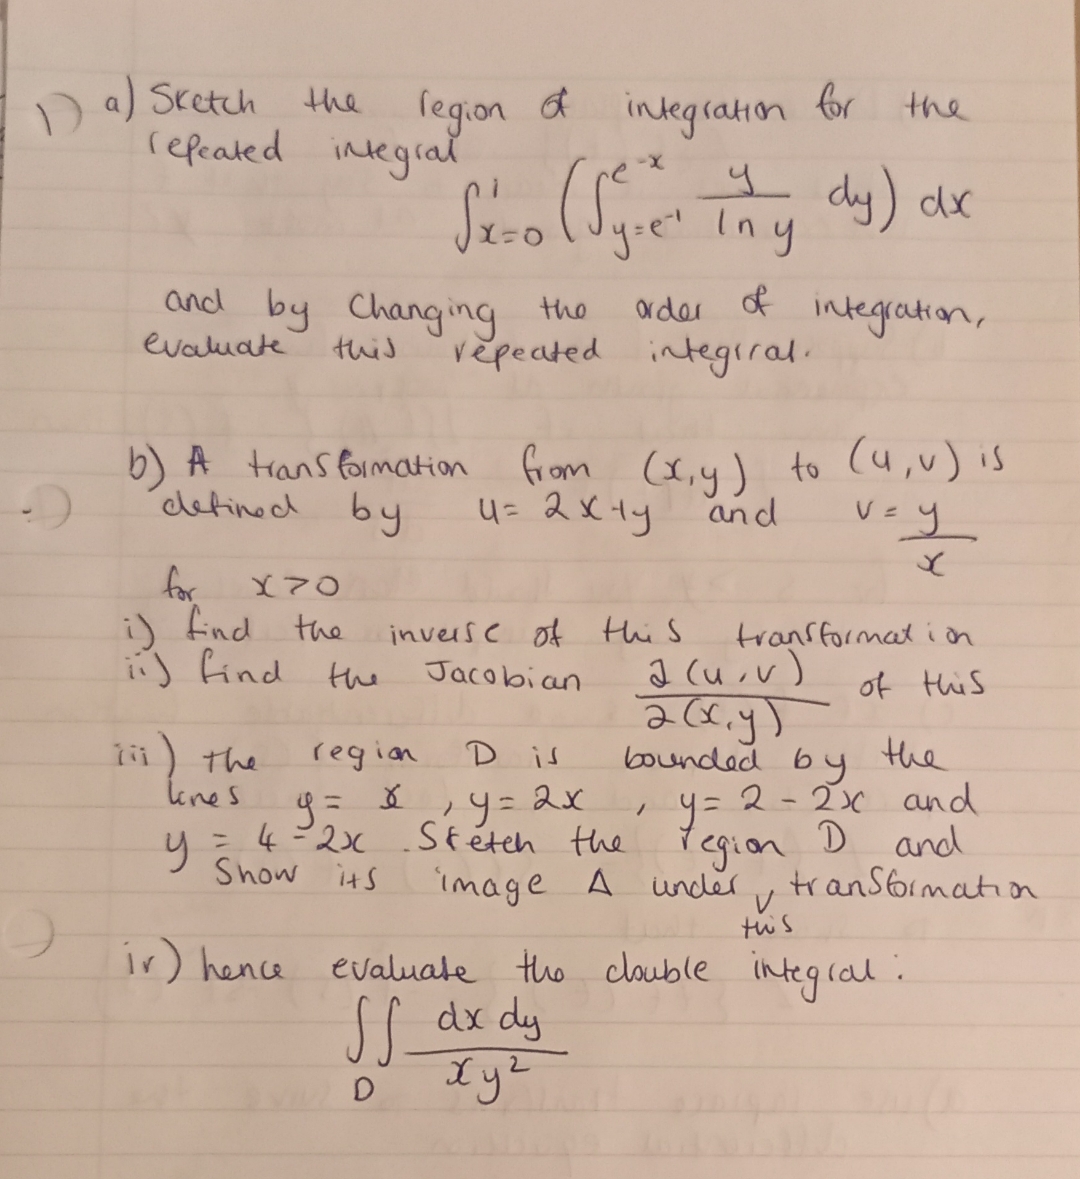 1) a) Sketch the region of integration for the
repeated integral
∫_{x=0}^{1} (∫_{y=e^{-1}}^{e^{-x}} y/ln y dy) dx
and by Changing the order of integration,
evaluate this repeated integral.
b) A transformation from (x,y) to (u,v) is
defined by u = 2x+y and v = y/x
for x>0
i) find the inverse of this transformation
ii) find the Jacobian ∂(u,v)/∂(x,y) of this
iii) the region D is bounded by the
lines y = x, y = 2x, y = 2 - 2x and
y = 4 - 2x. Sketch the region D and
Show its image Δ under this transformation
iv) hence evaluate the double integral:
∬_D dx dy/xy²